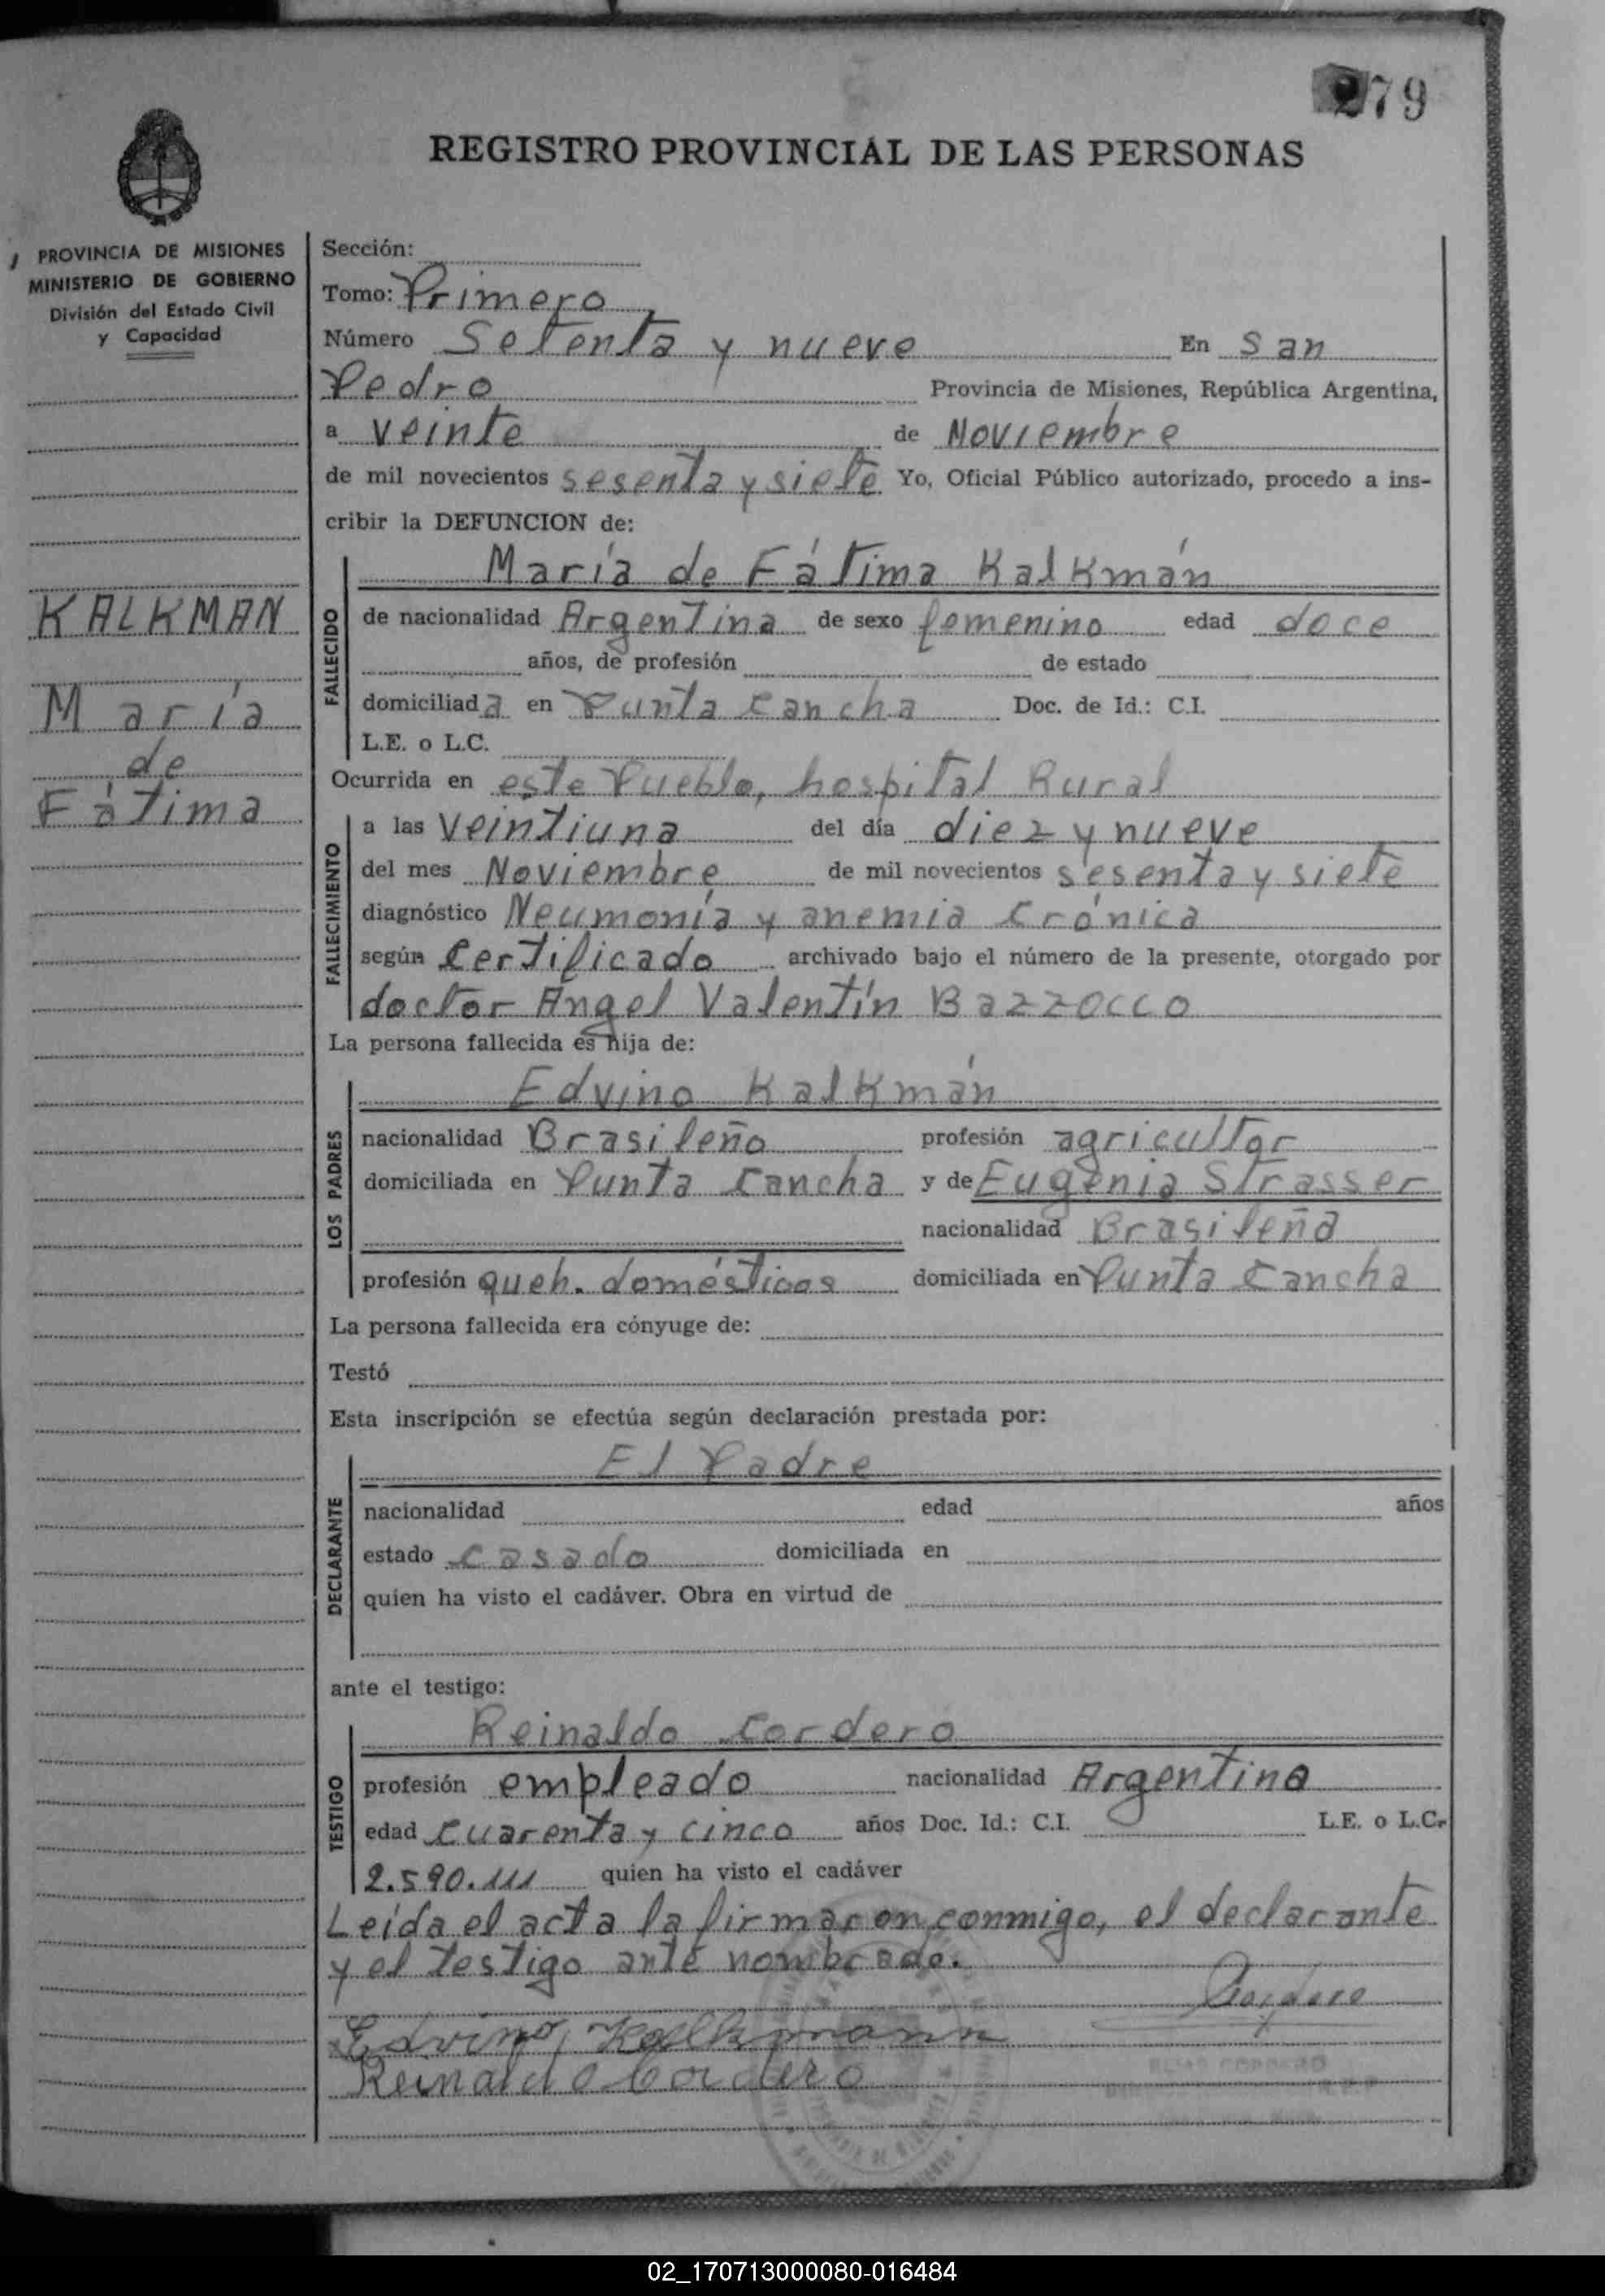 279
REGISTRO PROVINCIAL DE LAS PERSONAS
PROVINCIA DE MISIONES
MINISTERIO DE GOBIERNO
División del Estado Civil
y Capacidad
KALKMAN
María
de
Fátima
Sección:
Tomo: Primero
Número Setenta y nueve En San
Pedro Provincia de Misiones, República Argentina,
a veinte de Noviembre
de mil novecientos sesenta y siete Yo, Oficial Público autorizado, procedo a ins-
cribir la DEFUNCION de:
María de Fátima Kalkmán
FALLECIDO
de nacionalidad Argentina de sexo femenino edad doce
años, de profesión de estado
domiciliada en Punta Cancha Doc. de Id.: C.I.
L.E. o L.C.
Ocurrida en este Pueblo, hospital Rural
FALLECIMIENTO
a las veintiuna del día diez y nueve
del mes Noviembre de mil novecientos sesenta y siete
diagnóstico Neumonía y anemia crónica
según Certificado archivado bajo el número de la presente, otorgado por
doctor Angel Valentín Bazzocco
La persona fallecida es hija de:
LOS PADRES
Edvino Kalkmán
nacionalidad Brasileño profesión agricultor
domiciliada en Punta Cancha y de Eugenia Strasser
nacionalidad Brasileña
profesión queh. domésticos domiciliada en Punta Cancha
La persona fallecida era cónyuge de:
Testó
Esta inscripción se efectúa según declaración prestada por:
El Padre
DECLARANTE
nacionalidad edad años
estado casado domiciliada en
quien ha visto el cadáver. Obra en virtud de
ante el testigo:
Reinaldo Cordero
TESTIGO
profesión empleado nacionalidad Argentino
edad cuarenta y cinco años Doc. Id.: C.I. L.E. o L.C.
2.590.111 quien ha visto el cadáver
Leida el acta la firmaron conmigo, el declarante
y el testigo ante nombrado.
Edvino Kalkmann
Reinaldo Cordero
CORDERO
02_170713000080-016484